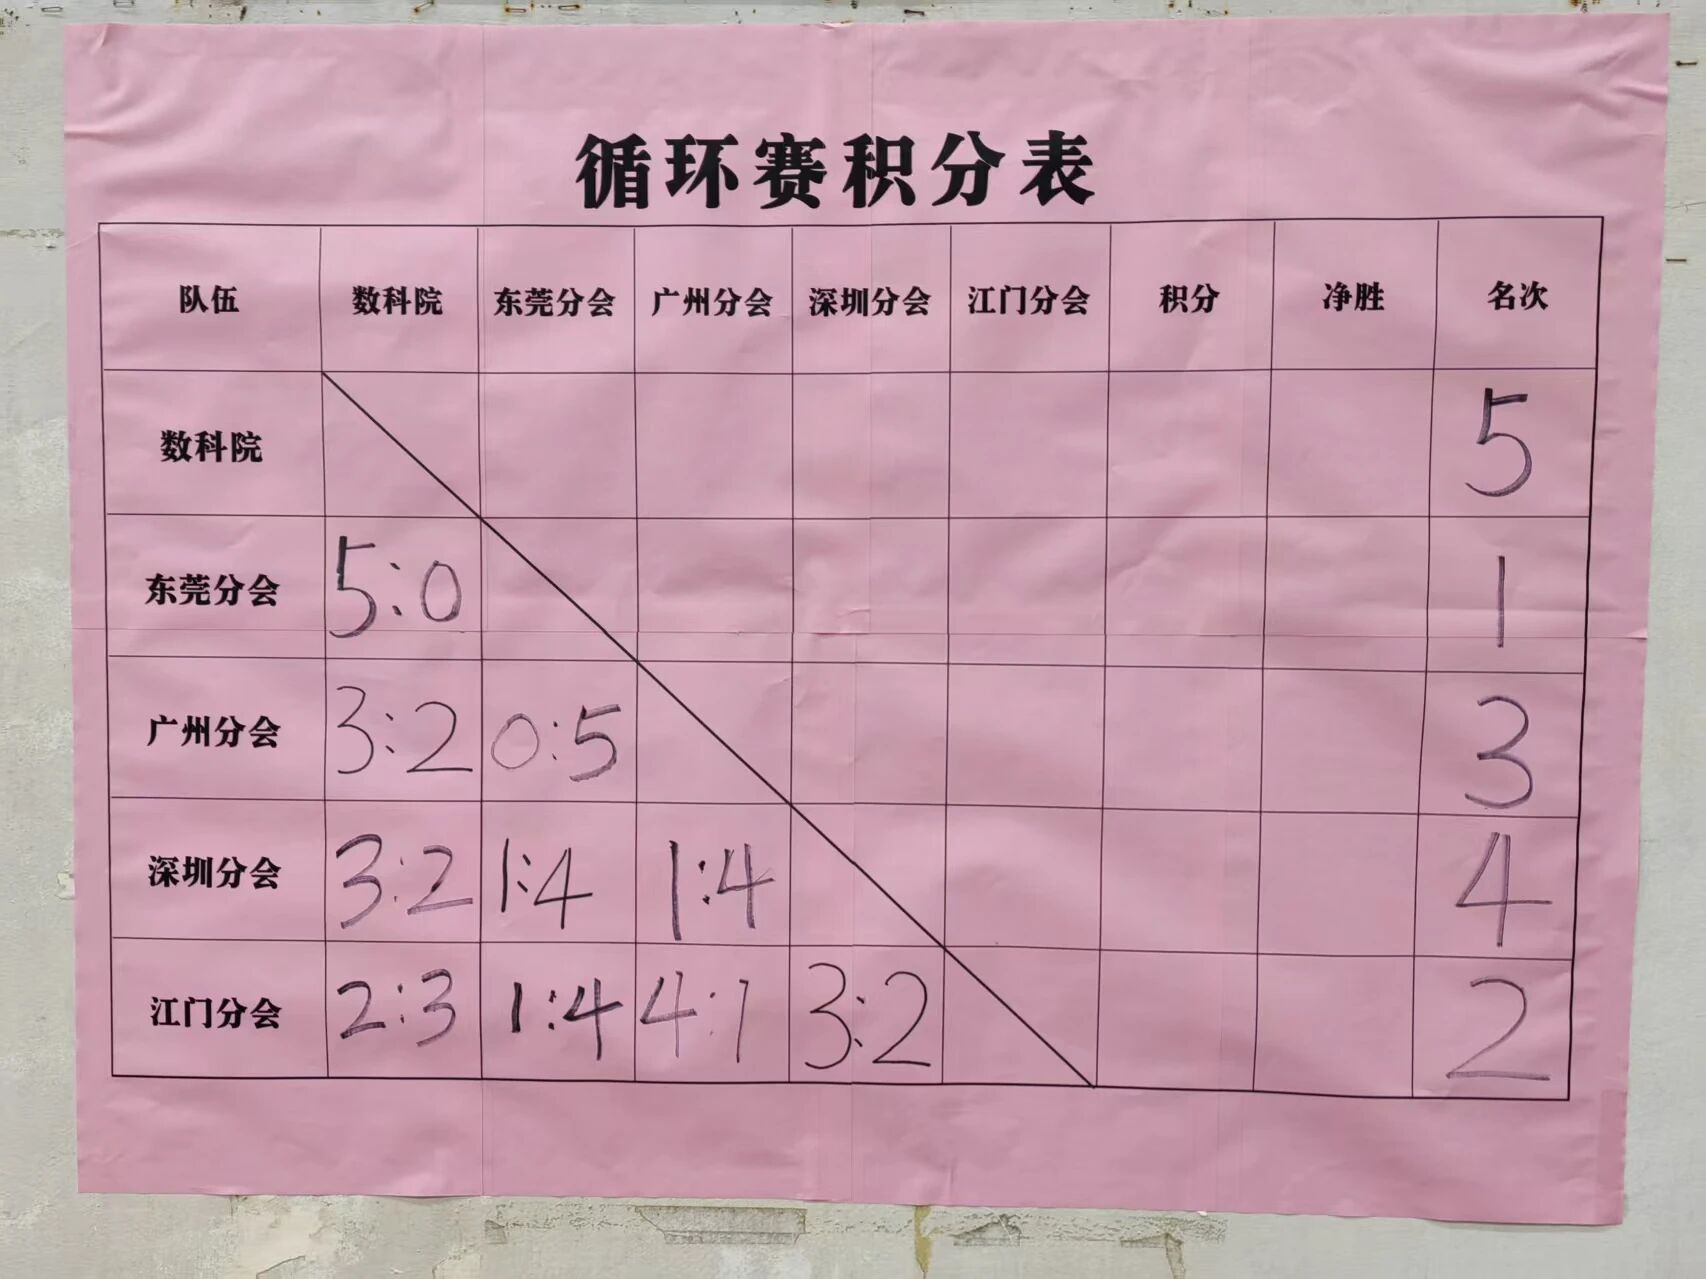 循环赛积分表
队伍 数科院 东莞分会 广州分会 深圳分会 江门分会 积分 净胜 名次
数科院 5
东莞分会 5:0 1
广州分会 3:2 0:5 3
深圳分会 3:2 1:4 1:4 4
江门分会 2:3 1:4 4:1 3:2 2